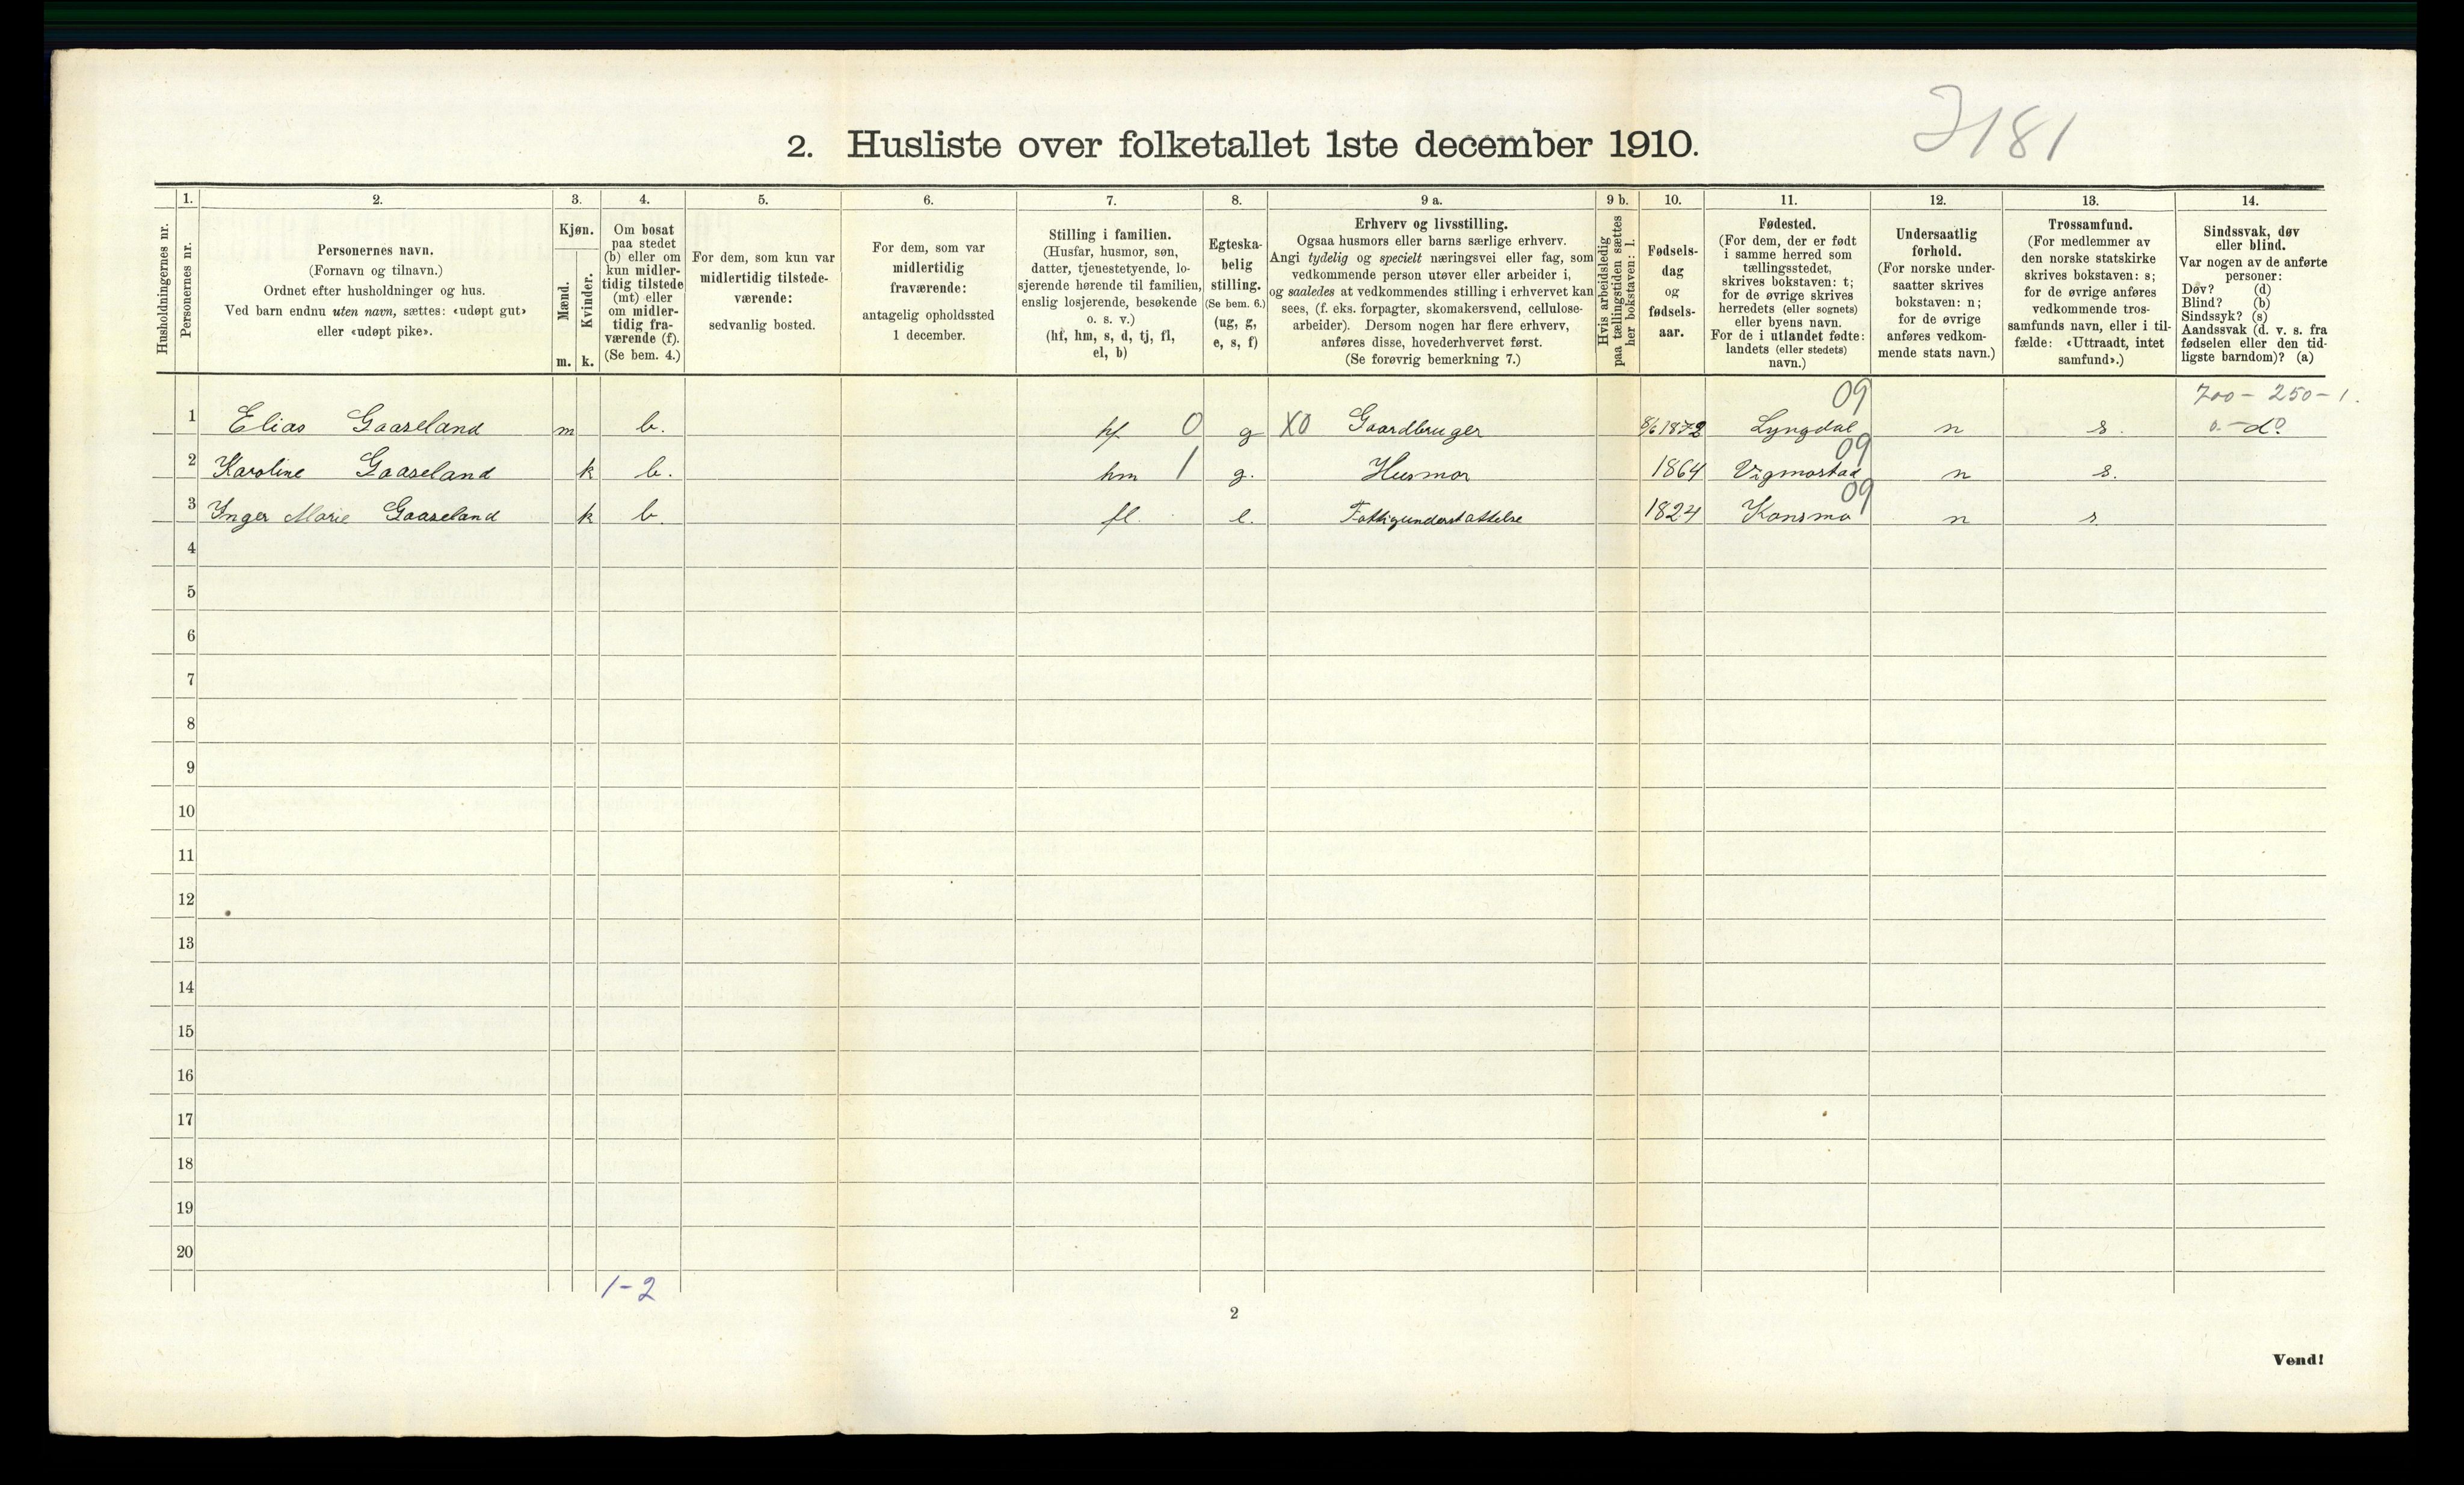 J181
2. Husliste over folketallet 1ste december 1910.
Husholdningernes nr.
1.
Personernes nr.
2.
Personernes navn.
(Fornavn og tilnavn.)
Ordnet efter husholdninger og hus.
Ved barn endnu uten navn, sættes: «udøpt gut»
eller «udøpt pike».
3.
Kjøn.
Mænd.
m.
Kvinder.
k.
4.
Om bosat
paa stedet
(b) eller om
kun midler-
tidig tilstede
(mt) eller
om midler-
tidig fra-
værende (f).
(Se bem. 4.)
5.
For dem, som kun var
midlertidig tilstede-
værende:
sedvanlig bosted.
6.
For dem, som var
midlertidig
fraværende:
antagelig opholdssted
1 december.
7.
Stilling i familien.
(Husfar, husmor, søn,
datter, tjenestetyende, lo-
sjerende hørende til familien,
enslig losjerende, besøkende
o. s. v.)
(hf, hm, s, d, tj, fl,
el, b)
8.
Egteska-
belig
stilling.
(Se bem. 6.)
(ug, g,
e, s, f)
9 a.
Erhverv og livsstilling.
Ogsaa husmors eller barns særlige erhverv.
Angi tydelig og specielt næringsvei eller fag, som
vedkommende person utøver eller arbeider i,
og saaledes at vedkommendes stilling i erhvervet kan
sees, (f. eks. forpagter, skomakersvend, cellulose-
arbeider). Dersom nogen har flere erhverv,
anføres disse, hovederhvervet først.
(Se forøvrig bemerkning 7.)
9 b.
Hvis arbeidsledig
paa tællingstiden sættes
her bokstaven: l.
10.
Fødsels-
dag
og
fødsels-
aar.
11.
Fødested.
(For dem, der er født
i samme herred som
tællingsstedet,
skrives bokstaven: t;
for de øvrige skrives
herredets (eller sognets)
eller byens navn.
For de i utlandet fødte:
landets (eller stedets)
navn.)
12.
Undersaatlig
forhold.
(For norske under-
saatter skrives
bokstaven: n;
for de øvrige
anføres vedkom-
mende stats navn.)
13.
Trossamfund.
(For medlemmer av
den norske statskirke
skrives bokstaven: s;
for de øvrige anføres
vedkommende tros-
samfunds navn, eller i til-
fælde: «Uttraadt, intet
samfund».)
14.
Sindssvak, døv
eller blind.
Var nogen av de anførte
personer:
Døv? (d)
Blind? (b)
Sindssyk? (s)
Aandssvak (d. v. s. fra
fødselen eller den tid-
ligste barndom)? (a)
09 700 - 250 - 1.
1 Elias Gaaseland m b. hf 0 g X0 Gaardbruger 8/6 1872 Lyngdal n s. 0. - d?
09
2 Karoline Gaaseland k b. hm 1 g. Husmor 1864 Vigmostad n s.
09
3 Inger Marie Gaaseland k b. fl. e. Fattigunderstøttelse 1824 Konsmo n s.
4
5
6
7
8
9
10
11
12
13
14
15
16
17
18
19
20
1-2
2
Vend!